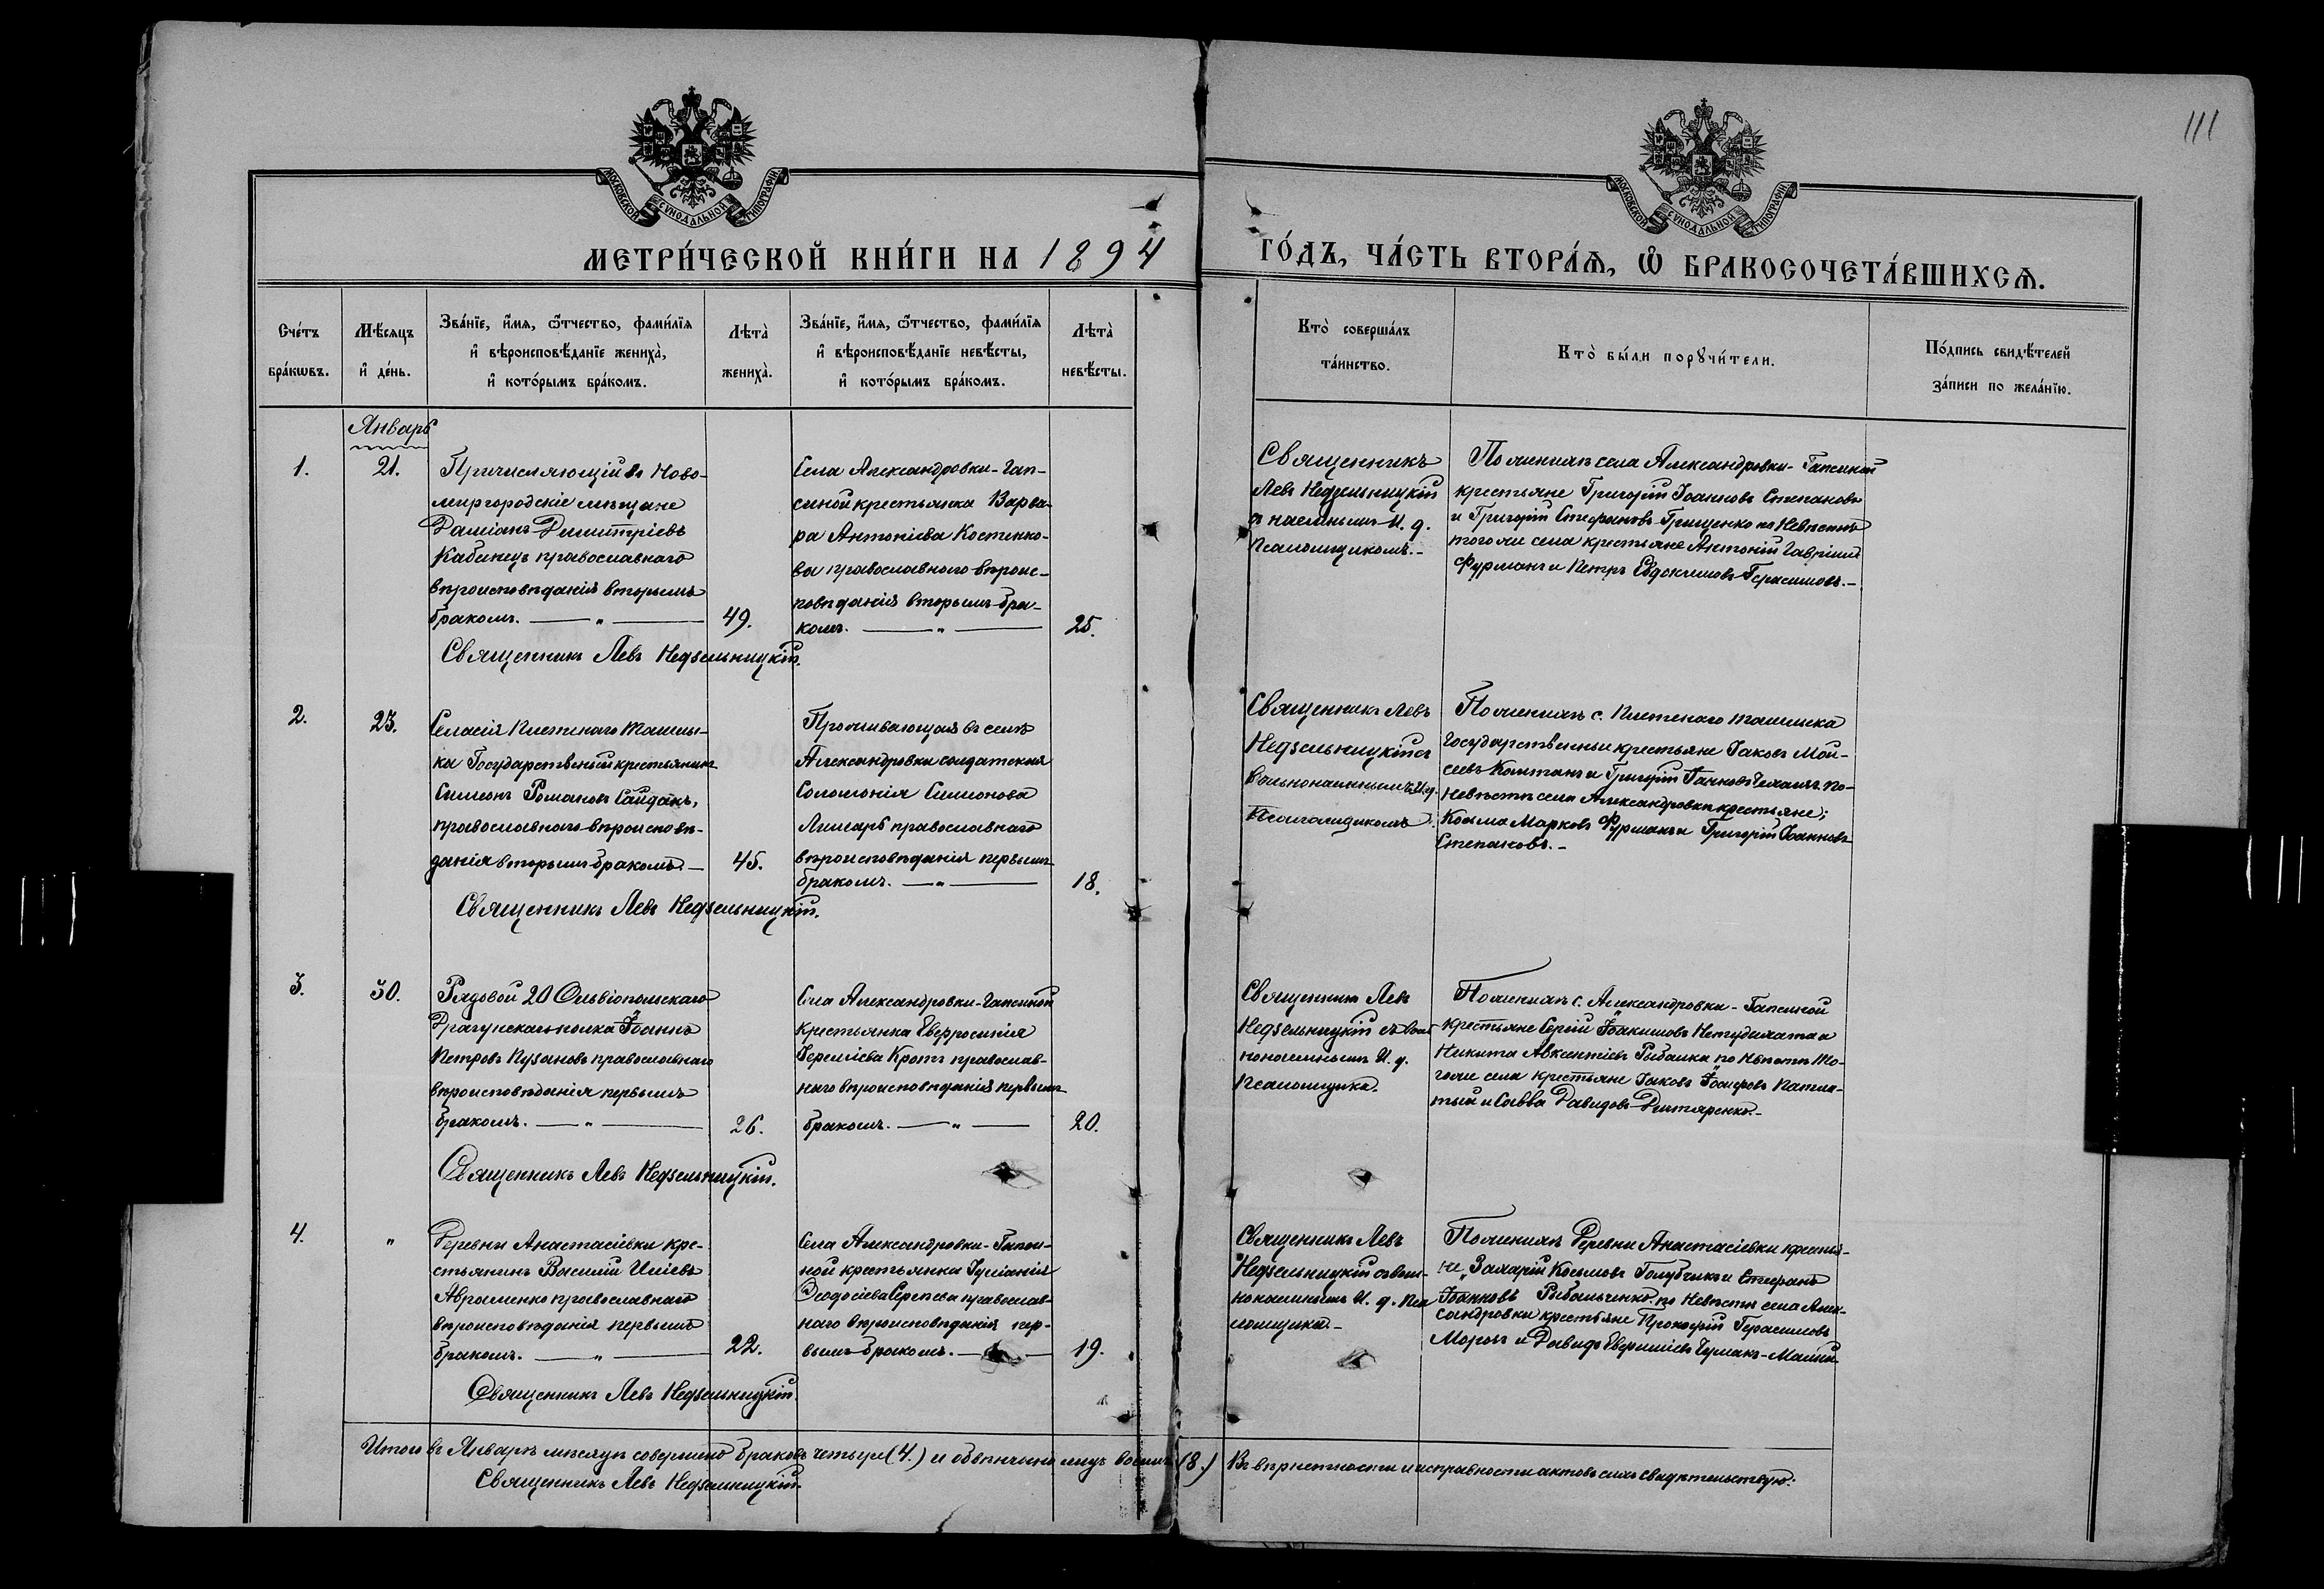 111
МОСКОВСКОЙ СѴНОДАЛЬНОЙ ТИПОГРАФІИ
МОСКОВСКОЙ СѴНОДАЛЬНОЙ ТИПОГРАФІИ
МЕТРИ́ЧЕСКОЙ КНИ́ГИ НА 1894
ГО́ДЪ, ЧА́СТЬ ВТОРА́Ѧ, Ѡ҆ БРАКОСОЧЕТА́ВШИХСѦ.
Сче́тъ
бра́кѡвъ.
Мѣ́сяцъ
и҆ де́нь.
Зва́нїе, и҆́мѧ, ѻ҆́тчество, фами́лїѧ
и҆ вѣроисповѣ́данїе жениха̀,
и҆ кото́рымъ бра́комъ.
Лѣта̀
жениха̀.
Зва́нїе, и҆́мѧ, ѻ҆́тчество, фами́лїѧ
и҆ вѣроисповѣ́данїе невѣ́сты,
и҆ кото́рымъ бра́комъ.
Лѣта̀
невѣ́сты.
Кто̀ соверша́лъ
та́инство.
Кто̀ бы́ли порꙋчи́тели.
По́дпись свидѣ́телей
за́писи по жела́нїю.
Январь
1.
21.
Причисляющій въ Ново-
миргородскіе мѣщане
Даміанъ Димитріевъ
Кабинецъ православнаго
вѣроисповѣданія вторымъ
бракомъ. — „ —
49.
Села Александровки-Гап-
синой крестьянка Варва-
ра Антоніева Костенко-
ва православнаго вѣроис-
повѣданія вторымъ бра-
комъ. — „ —
25.
Священникъ Левъ Недзельницкій.
Священникъ
Левъ Недзельницкій
съ наемнымъ И. д.
псаломщикомъ.-
По женихѣ села Александровки-Гапсиной
крестьяне Григорій Іоанновъ Степановъ
и Григорій Стефановъ Грищенко по Невѣстѣ
того же села крестьяне Антоній Гавріил
Фурманъ и Петръ Евдокимовъ Герасимовъ.-
2.
23.
Селенія Плетенаго Ташлы-
ка Государственный крестьянинъ
Симеонъ Романовъ Сайдакъ,
православнаго вѣроисповѣ-
данія вторымъ бракомъ. —
45.
Проживающая въ селѣ
Александровки солдатская
Соломонія Симонова
Лимарь православнаго
вѣроисповѣданія первымъ
бракомъ. — „ —
18.
Священникъ Левъ Недзельницкій.
Священникъ Левъ
Недзельницкій съ
вольнонаемнымъ И.д.
Псаломщикомъ.
По женихѣ с. Плетенаго Ташлыка
Государственные крестьяне Іаковъ Мой-
сеевъ и Григорій по
Невѣстѣ села Александровки крестьяне;
Косьма Марковъ Фурманъ и Григорій Іоанновъ
Степановъ.-
3.
30.
Рядовой 20 Ольвіопольскаго
Драгунскаго полка Іоаннъ
Петровъ Пузановъ православнаго
вѣроисповѣданія первымъ
бракомъ. — „ —
26.
Села Александровки-Гапсиной
крестьянка Евфросинія
Іереміева Кротъ православ-
наго вѣроисповѣданія первымъ
бракомъ. — „ —
20.
Священникъ Левъ Недзельницкій.
Священник Левъ
Недзельницкій съ воль
нонаемнымъ И. д.
Псаломщика.
По женихѣ с. Александровка-Гапсиной
крестьяне Сергій Іоакимовъ и
Никита Авксентіевъ Рибалка по Нѣвѣстѣ то-
гоже села крестьяне Іаковъ Іосифовъ
и Савва Давидовъ Дихтяренко.-
4.
„
Деревни Анастасіевки кре-
стьянинъ Василій Иліевъ
Авраменко православнаго
вѣроисповѣданія первымъ
бракомъ. — „ —
22.
Села Александровки-Гапси-
ной крестьянка Іуліанія
Ѳеодосіева православ-
наго вѣроисповѣданія пер-
вымъ бракомъ. —
19.
Священникъ Левъ Недзельницкій.
Священникъ Левъ
Недзельницкій съ воль-
нонаемнымъ И. д. Пса
ломщика.-
По женихѣ Деревни Анастасіевки крестья-
не, Захарій Косьмовъ Голубчикъ и Стефанъ
Іоанновъ Рибальченко, по Невѣстѣ села Алек-
сандровки крестьяне Прокофій Герасимовъ
Морозъ и Давидъ Чумакъ-Малый.
Итого въ Январѣ мѣсяцѣ совершено браковъ четыре (4.) и обвѣнчано лицъ восемь (8.) Въ вѣрности и исправности актовъ симъ свидѣтельствую:
Священникъ Левъ Недзельницкій.